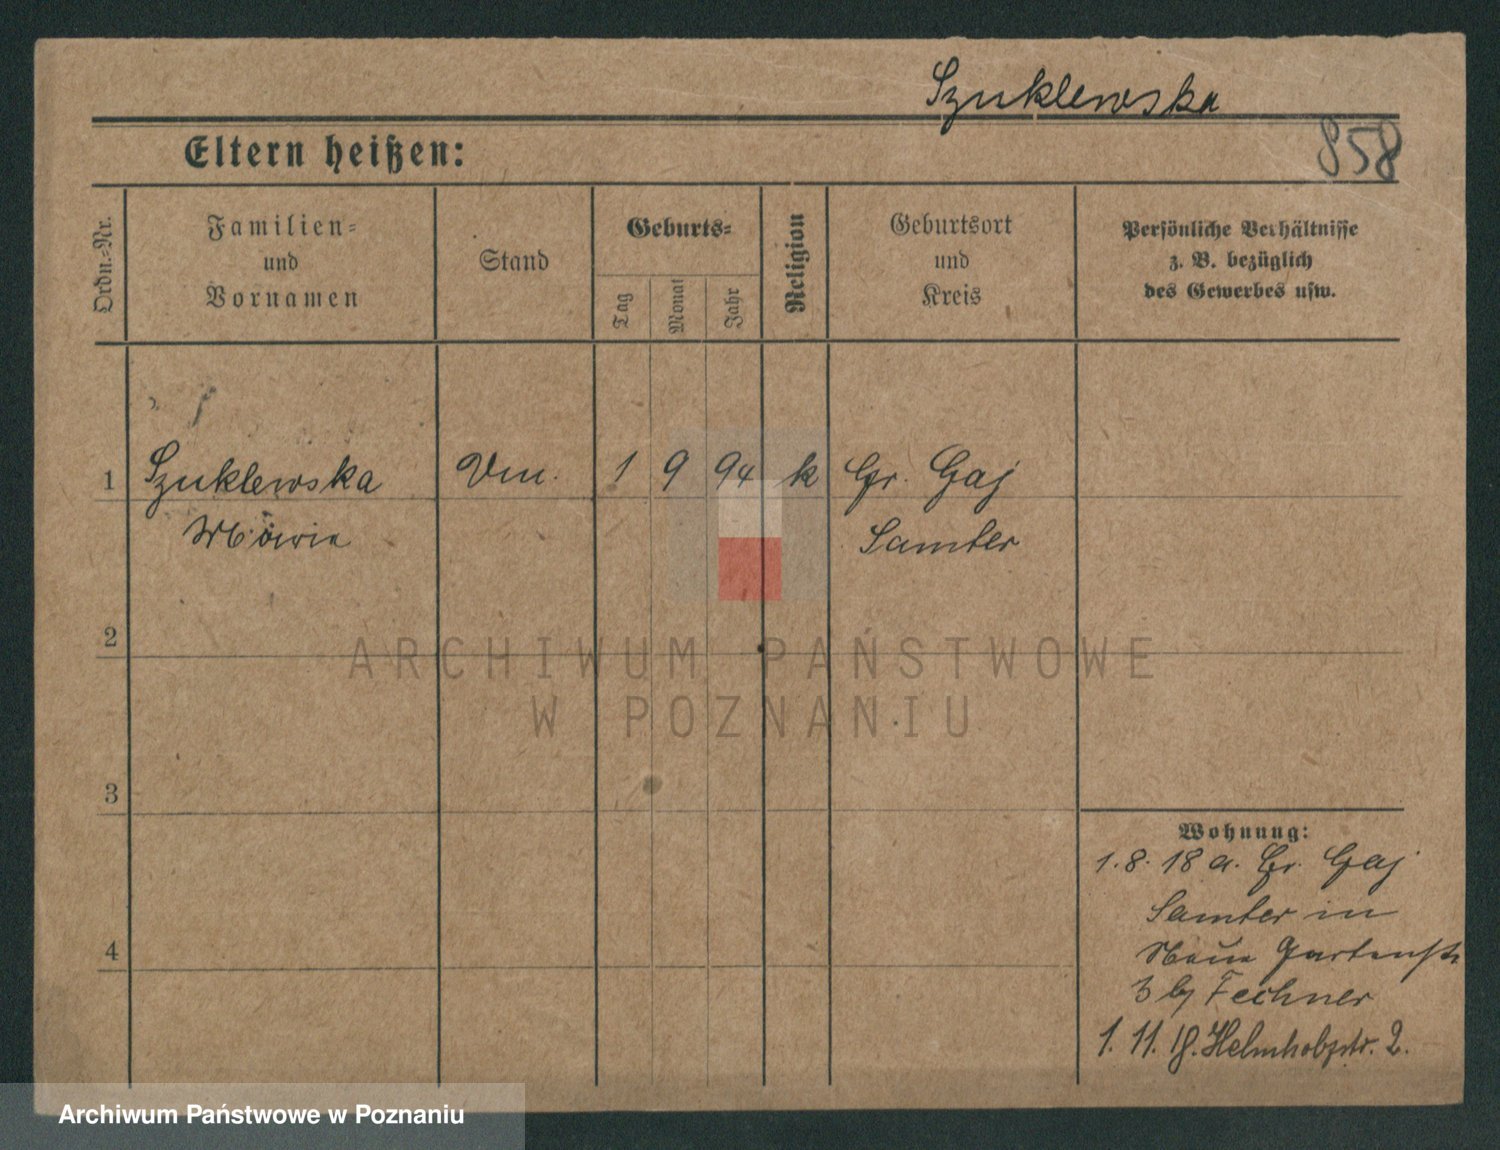 Szuklewska
858
Eltern heißen:
Ordn.-Nr.
Familien-
und
Vornamen
Stand
Geburts-
Tag
Monat
Jahr
Religion
Geburtsort
und
Kreis
Persönliche Verhältnisse
z. B. bezüglich
des Gewerbes usw.
1 Szuklewska 1 9 94 k Gr. Gaj
Samter
2
3
4
ARCHIWUM PAŃSTWOWE
W POZNANIU
Wohnung:
1.8.18 a. Gr. Gaj
Samter in
Neue Gartenstr
3 by Fechner
1.11.18. Helmholzstr. 2.
Archiwum Państwowe w Poznaniu